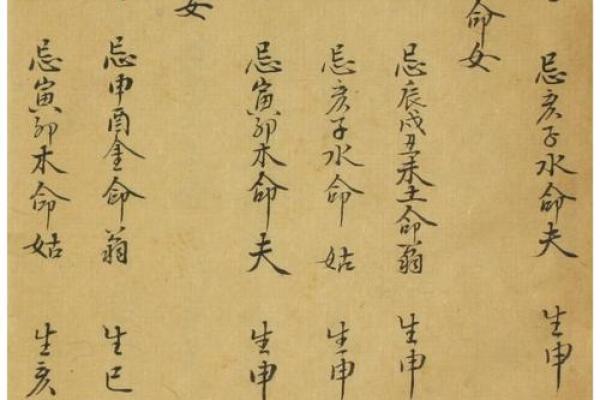 忌亥子水命夫 生申
命女
忌辰戌丑未土命翁 生申
忌亥子水命姑 生申
忌寅卯木命夫 生申
女
忌申酉金命翁 生巳
忌寅卯木命姑 生亥